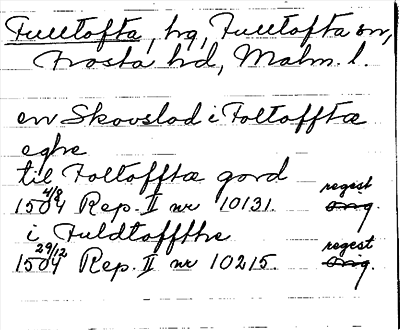 Fulltofta, hg, Fulltofta sn,
Frosta hd, Malm. l.
en Skovslod i Foltofftæ
eghe
til Foltofftæ gord
1504 4/8 Rep. II nr 10131. regest orig.
i Fuldtoffthe
1504 29/12 Rep. II nr 10215. regest orig.